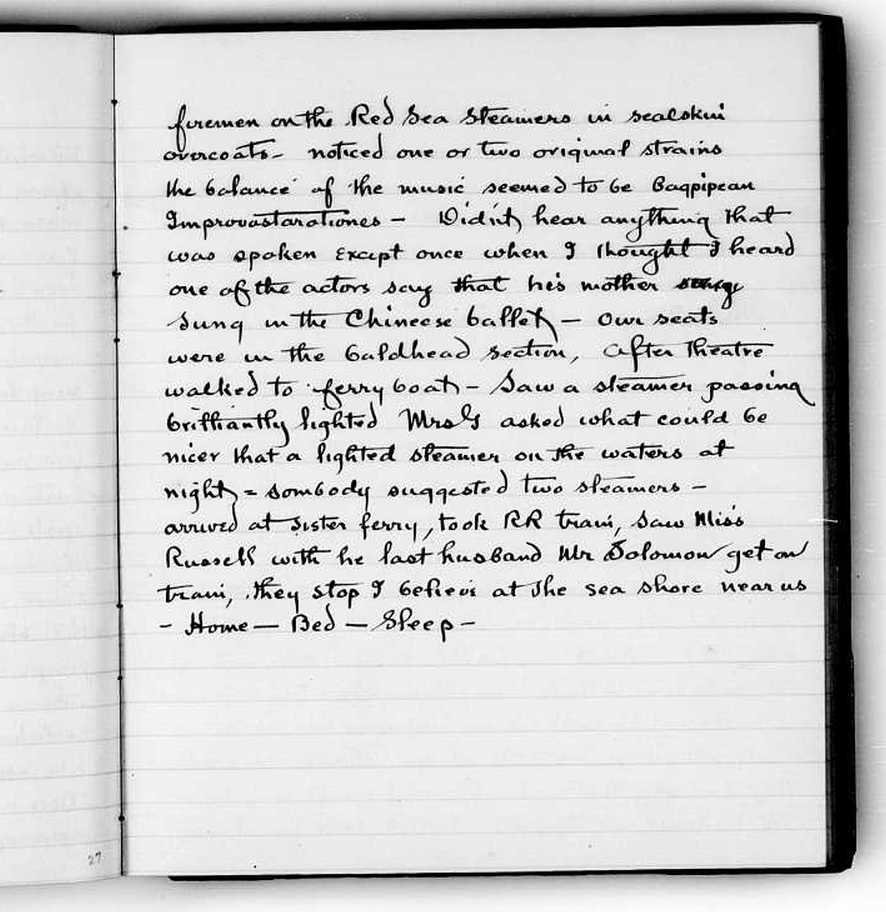 firemen on the Red Sea Steamers in sealskin
overcoats - noticed one or two original strains
the balance of the music seemed to be Bagpipean
Improvastarationes - Didn't hear anything that
was spoken Except once when I thought I heard
one of the actors say that his mother
sung in the Chineese ballet - our seats
were in the baldhead section, After Theatre
walked to ferry boat - Saw a steamer passing
brilliantly lighted Mrs G asked what could be
nicer that a lighted steamer on the waters at
night = sombody suggested two steamers -
arrived at sister ferry, took RR train, saw Miss
Russell with he last husband Mr Solomon get on
train, they stop I believe at the sea shore near us
- Home - Bed - Sleep -
27